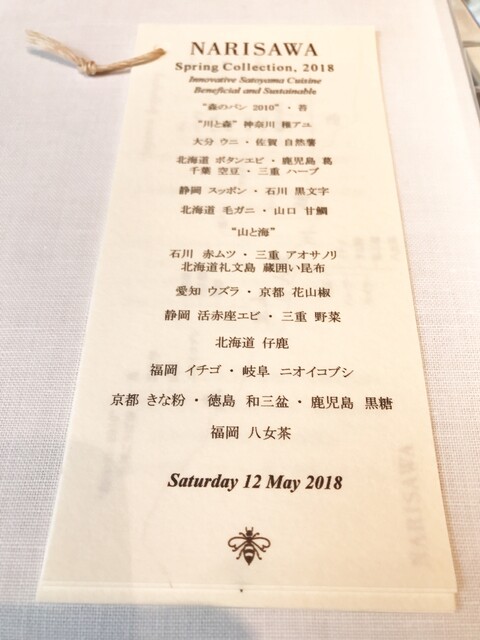 NARISAWA
Spring Collection, 2018
Innovative Satoyama Cuisine
Beneficial and Sustainable
“森のパン 2010”・苔
“川と森” 神奈川 稚アユ
大分 ウニ・佐賀 自然薯
北海道 ボタンエビ・鹿児島 葛
千葉 空豆・三重 ハーブ
静岡 スッポン・石川 黒文字
北海道 毛ガニ・山口 甘鯛
“山と海”
石川 赤ムツ・三重 アオサノリ
北海道礼文島 蔵囲い昆布
愛知 ウズラ・京都 花山椒
静岡 活赤座エビ・三重 野菜
北海道 仔鹿
福岡 イチゴ・岐阜 ニオイコブシ
京都 きな粉・徳島 和三盆・鹿児島 黒糖
福岡 八女茶
Saturday 12 May 2018
NARISAWA